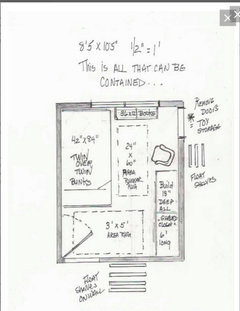 8'5 X 10'5" 1/2" = 1'
THIS IS ALL THAT CAN BE
CONTAINED...
REMOVE
DOORS
= TOY
STORAGE
BOOKS
42" X 84"
TWIN
OVER
TWIN
BUNKS
24"
X
AREA
RUG
FLOAT
SHELVES
Build
18"
DEEP
ALL
CLOSET
6'
long
3' X 5'
AREA RUG
FLOAT
SHELVES
ON WALL